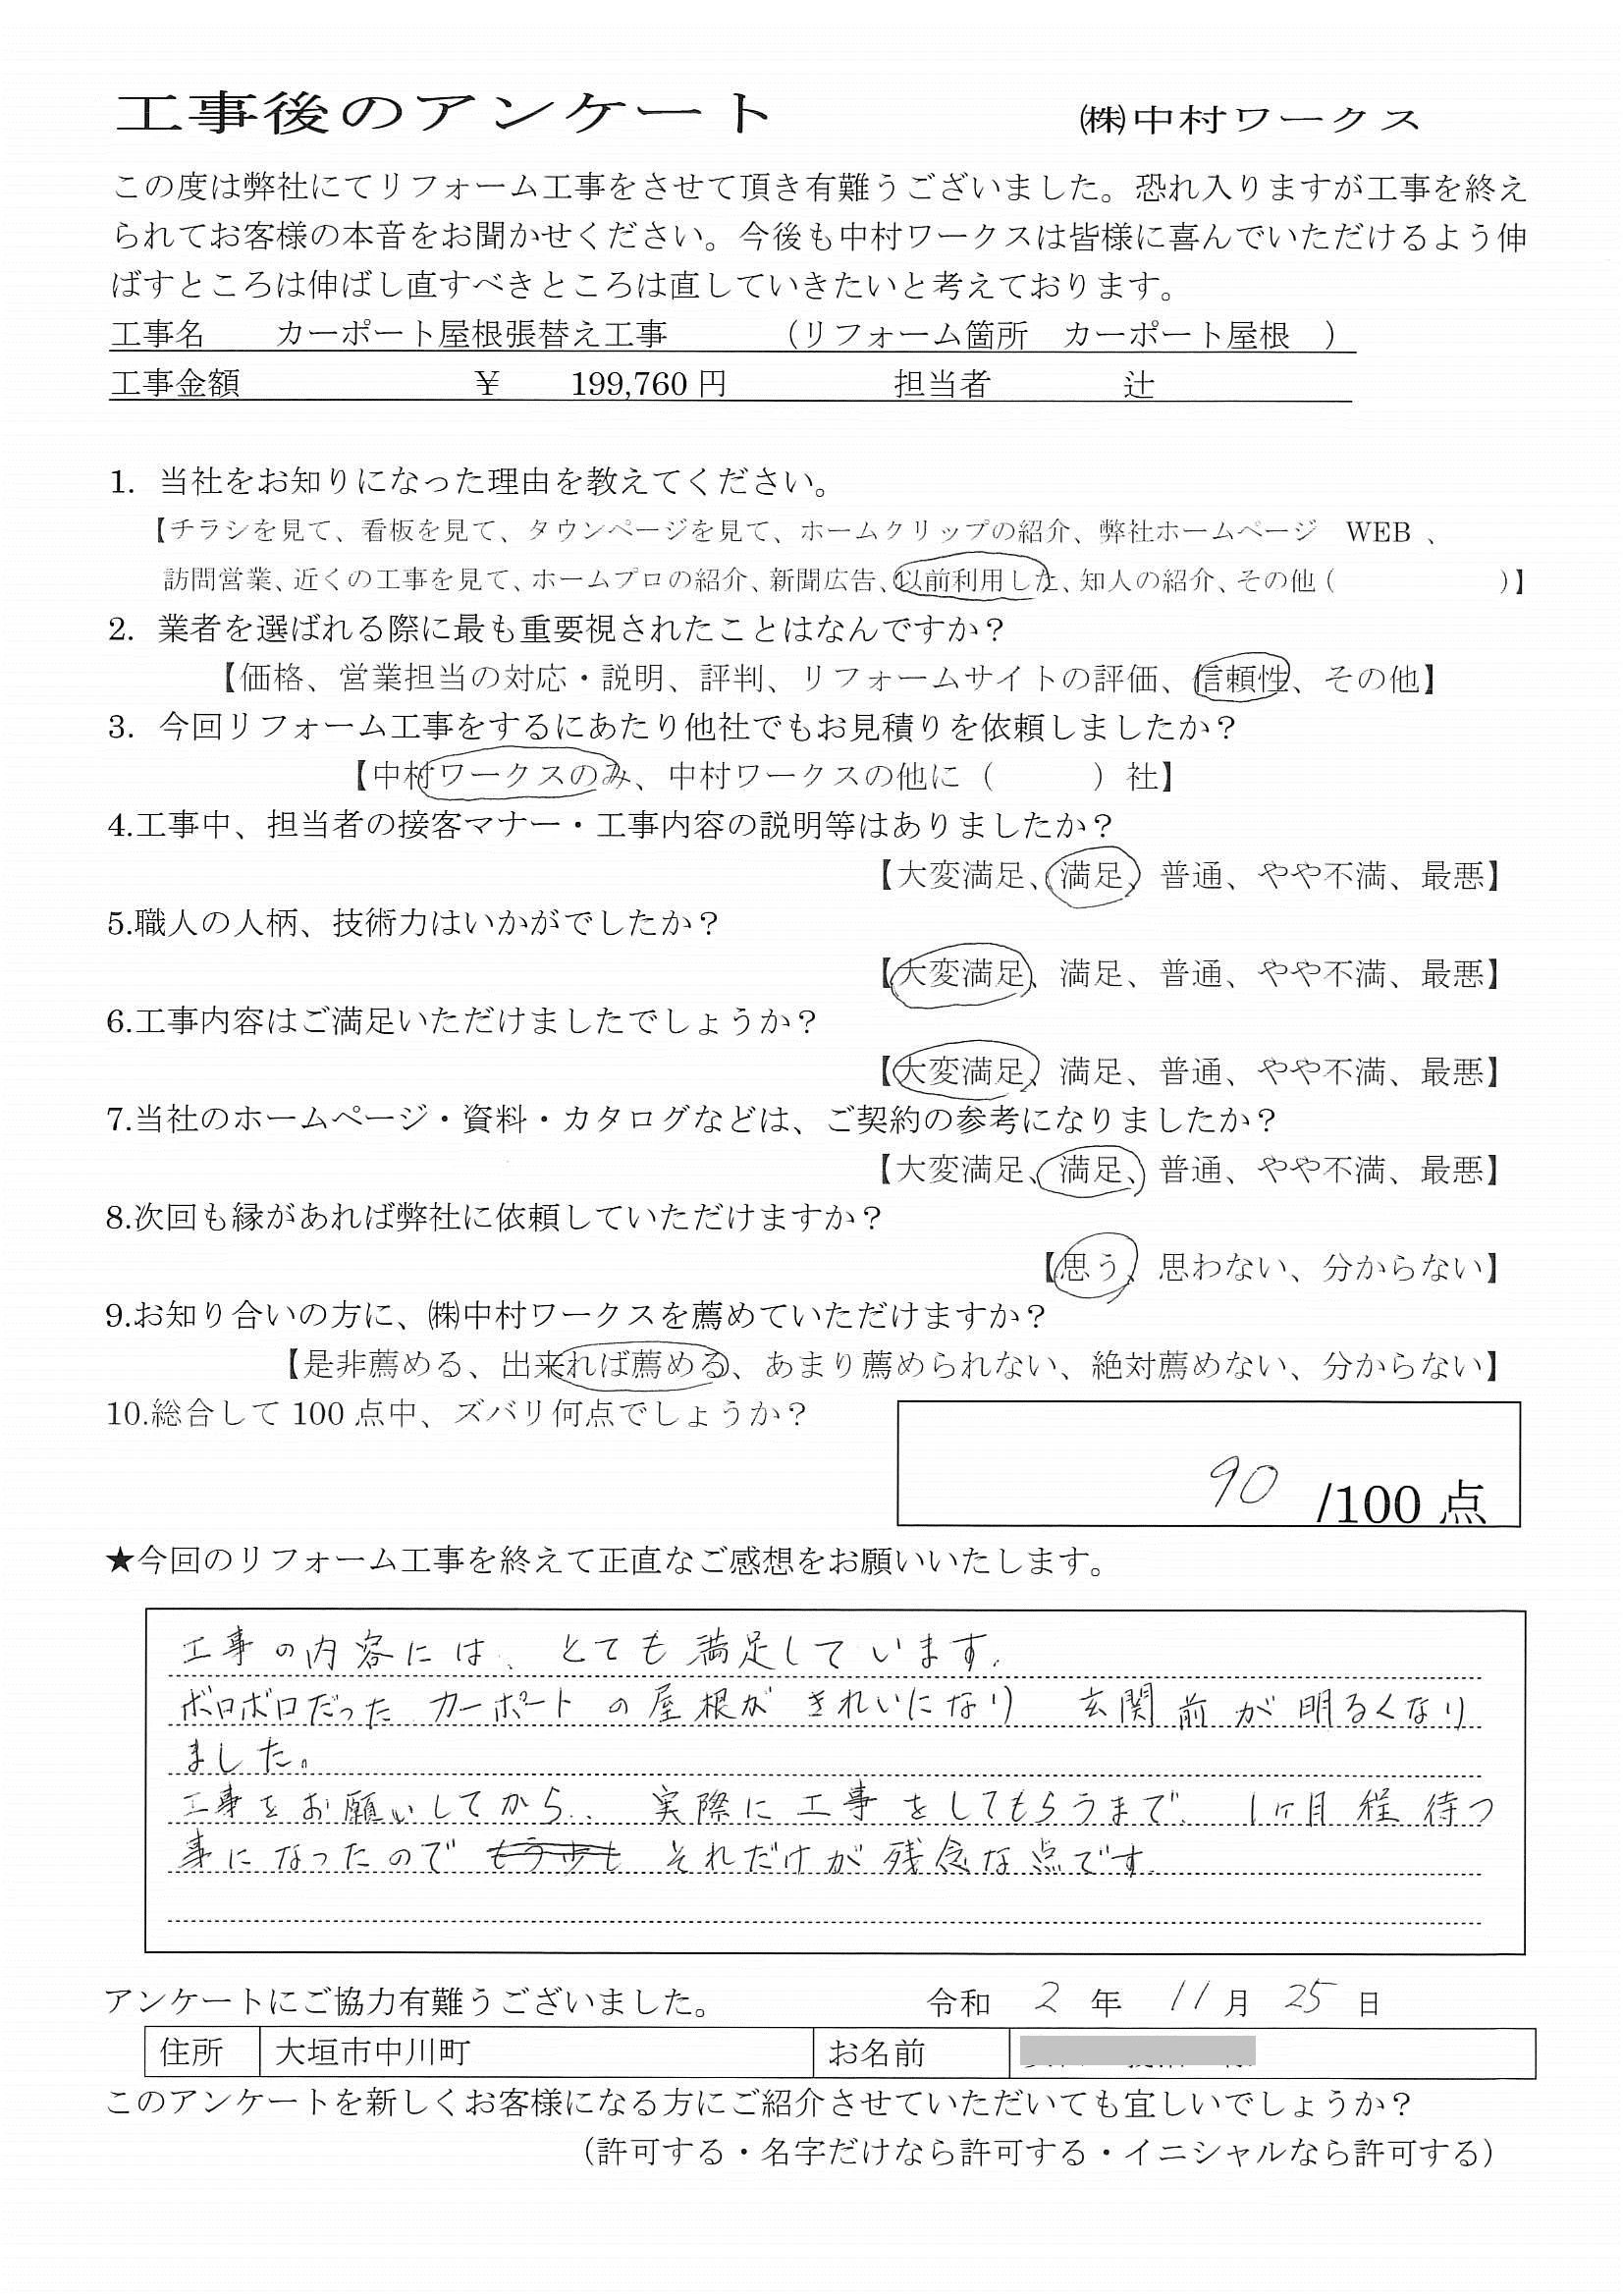 工事後のアンケート　㈱中村ワークス
この度は弊社にてリフォーム工事をさせて頂き有難うございました。恐れ入りますが工事を終え
られてお客様の本音をお聞かせください。今後も中村ワークスは皆様に喜んでいただけるよう伸
ばすところは伸ばし直すべきところは直していきたいと考えております。
工事名　カーポート屋根張替え工事　（リフォーム箇所　カーポート屋根　）
工事金額　￥　199,760 円　担当者　辻
1. 当社をお知りになった理由を教えてください。
【チラシを見て、看板を見て、タウンページを見て、ホームクリップの紹介、弊社ホームページ　WEB 、
訪問営業、近くの工事を見て、ホームプロの紹介、新聞広告、以前利用した、知人の紹介、その他（　）】
2. 業者を選ばれる際に最も重要視されたことはなんですか？
【価格、営業担当の対応・説明、評判、リフォームサイトの評価、信頼性、その他】
3. 今回リフォーム工事をするにあたり他社でもお見積りを依頼しましたか？
【中村ワークスのみ、中村ワークスの他に（　）社】
4.工事中、担当者の接客マナー・工事内容の説明等はありましたか？
【大変満足、満足、普通、やや不満、最悪】
5.職人の人柄、技術力はいかがでしたか？
【大変満足、満足、普通、やや不満、最悪】
6.工事内容はご満足いただけましたでしょうか？
【大変満足、満足、普通、やや不満、最悪】
7.当社のホームページ・資料・カタログなどは、ご契約の参考になりましたか？
【大変満足、満足、普通、やや不満、最悪】
8.次回も縁があれば弊社に依頼していただけますか？
【思う、思わない、分からない】
9.お知り合いの方に、㈱中村ワークスを薦めていただけますか？
【是非薦める、出来れば薦める、あまり薦められない、絶対薦めない、分からない】
10.総合して 100 点中、ズバリ何点でしょうか？
90 /100 点
★今回のリフォーム工事を終えて正直なご感想をお願いいたします。
工事の内容には、とても満足しています.
ボロボロだった カーポートの屋根が きれいになり 玄関前が明るくなり
ました。
工事をお願いしてから.. 実際に工事をしてもらうまで. 1ヶ月程待つ
事になったので もう少し それだけが残念な点です.
アンケートにご協力有難うございました。　令和 2 年 11 月 25 日
住所　大垣市中川町　お名前
このアンケートを新しくお客様になる方にご紹介させていただいても宜しいでしょうか？
（許可する・名字だけなら許可する・イニシャルなら許可する）